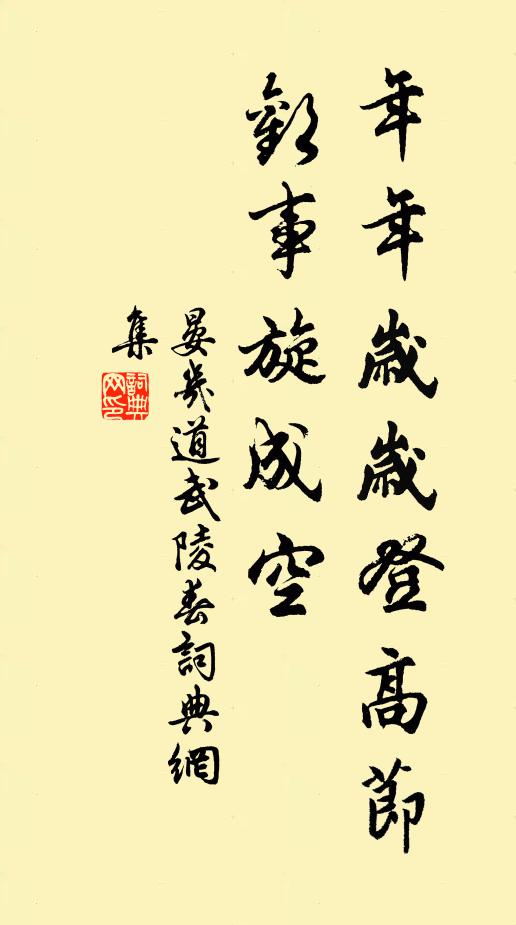 年年歲歲登高節
歡事旋成空
晏幾道武陵春詞典網
集
詞典网印